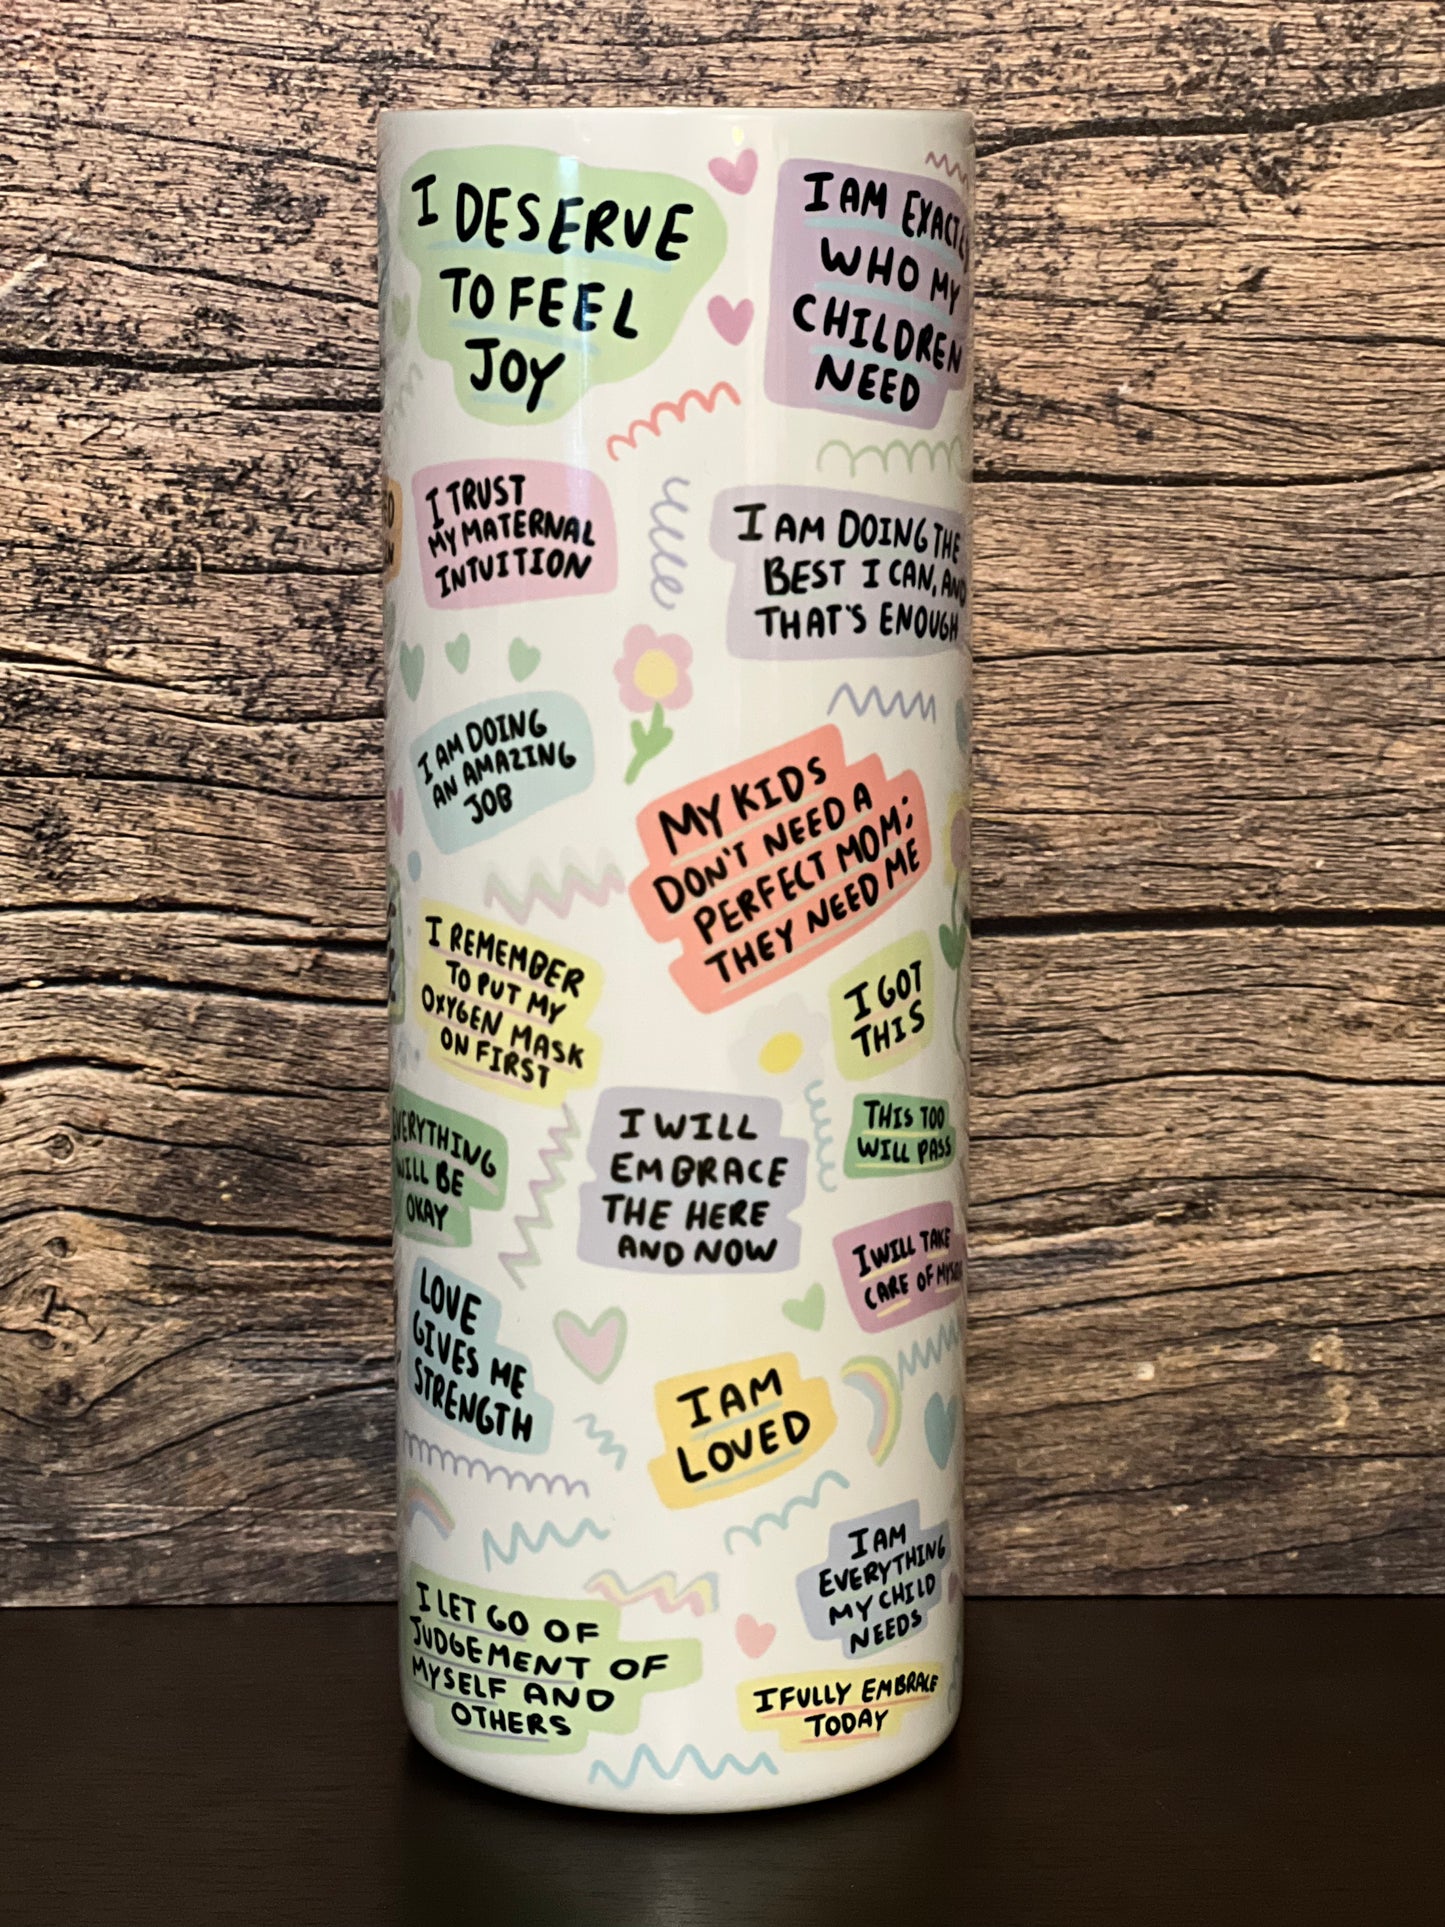 I DESERVE
TO FEEL
JOY
I AM EXACTLY
WHO MY
CHILDREN
NEED
I TRUST
MY MATERNAL
INTUITION
I AM DOING THE
BEST I CAN, AND
THAT'S ENOUGH
I AM DOING
AN AMAZING
JOB
MY KIDS
DON'T NEED A
PERFECT MOM;
THEY NEED ME
I REMEMBER
TO PUT MY
OXYGEN MASK
ON FIRST
I GOT
THIS
EVERYTHING
WILL BE
OKAY
I WILL
EMBRACE
THE HERE
AND NOW
THIS TOO
WILL PASS
I WILL TAKE
CARE OF MYSELF
LOVE
GIVES ME
STRENGTH
I AM
LOVED
I AM
EVERYTHING
MY CHILD
NEEDS
I LET GO OF
JUDGEMENT OF
MYSELF AND
OTHERS
I FULLY EMBRACE
TODAY